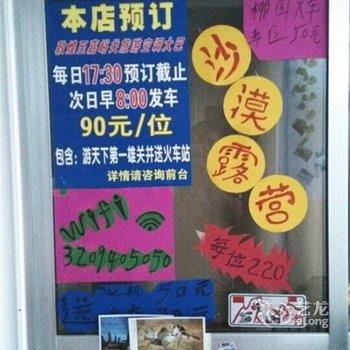 本店预订
敦煌至嘉峪关旅游空调大巴
每日17:30预订截止
次日早8:00发车
90元/位
包含：游天下第一雄关并送火车站
详情请咨询前台
每位50元
沙漠露营
wifi
3209405050
每位220
送
50元
艺龙
eLong.com